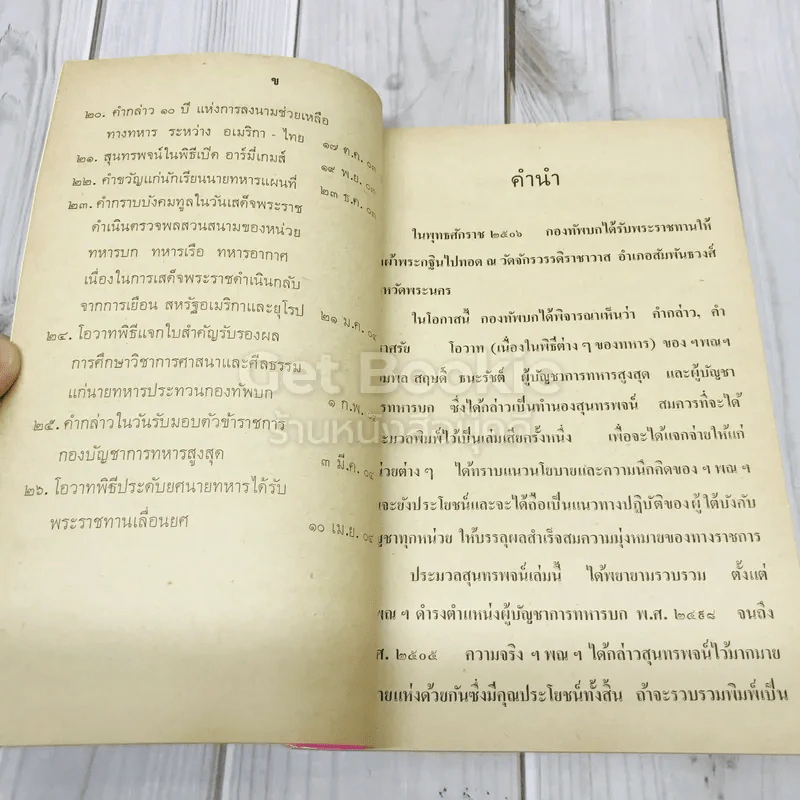 ข
๒๐. คำกล่าว ๑๐ ปี แห่งการลงนามช่วยเหลือ
ทางทหาร ระหว่าง อเมริกา - ไทย ๑๗ ต.ค. ๐๓
๒๑. สุนทรพจน์ในพิธีเปิด อาร์มี่เกมส์ ๑๙ พ.ย. ๐๓
๒๒. คำขวัญแก่นักเรียนนายทหารแผนที่ ๒๓ ธ.ค. ๐๓
๒๓. คำกราบบังคมทูลในวันเสด็จพระราช
ดำเนินตรวจพลสวนสนามของหน่วย
ทหารบก ทหารเรือ ทหารอากาศ
เนื่องในการเสด็จพระราชดำเนินกลับ
จากการเยือน สหรัฐอเมริกาและยุโรป ๒๑ ม.ค. ๐๔
๒๔. โอวาทพิธีแจกใบสำคัญรับรองผล
การศึกษาวิชาการศาสนาและศีลธรรม
แก่นายทหารประทวนกองทัพบก ๑ ก.พ.
๒๕. คำกล่าวในวันรับมอบตัวข้าราชการ
กองบัญชาการทหารสูงสุด ๓ มี.ค. ๐๔
๒๖. โอวาทพิธีประดับยศนายทหารได้รับ
พระราชทานเลื่อนยศ ๑๐ เม.ย. ๐๔
คำนำ
ในพุทธศักราช ๒๕๐๖ กองทัพบกได้รับพระราชทานให้
ผ้าพระกฐินไปทอด ณ วัดจักรวรรดิราชาวาส อำเภอสัมพันธวงศ์
หวัดพระนคร
ในโอกาสนี้ กองทัพบกได้พิจารณาเห็นว่า คำกล่าว, คำ
าศรัย โอวาท (เนื่องในพิธีต่าง ๆ ของทหาร) ของ ฯพณฯ
มพล สฤษดิ์ ธนะรัชต์ ผู้บัญชาการทหารสูงสุด และผู้บัญชา
รทหารบก ซึ่งได้กล่าวเป็นทำนองสุนทรพจน์ สมควรที่จะได้
ะมวลพิมพ์ไว้เป็นเล่มเสียครั้งหนึ่ง เพื่อจะได้แจกจ่ายให้แก่
น่วยต่าง ๆ ได้ทราบแนวนโยบายและความนึกคิดของ ฯ พณ ฯ
จะยังประโยชน์และจะได้ถือเป็นแนวทางปฏิบัติของผู้ใต้บังคับ
ญชาทุกหน่วย ให้บรรลุผลสำเร็จสมความมุ่งหมายของทางราชการ
ประมวลสุนทรพจน์เล่มนี้ ได้พยายามรวบรวม ตั้งแต่
พณ ฯ ดำรงตำแหน่งผู้บัญชาการทหารบก พ.ศ. ๒๔๙๘ จนถึง
ศ. ๒๕๐๕ ความจริง ฯ พณ ฯ ได้กล่าวสุนทรพจน์ไว้มากมาย
ายแห่งด้วยกันซึ่งมีคุณประโยชน์ทั้งสิ้น ถ้าจะรวบรวมพิมพ์เป็น
Get Bookie